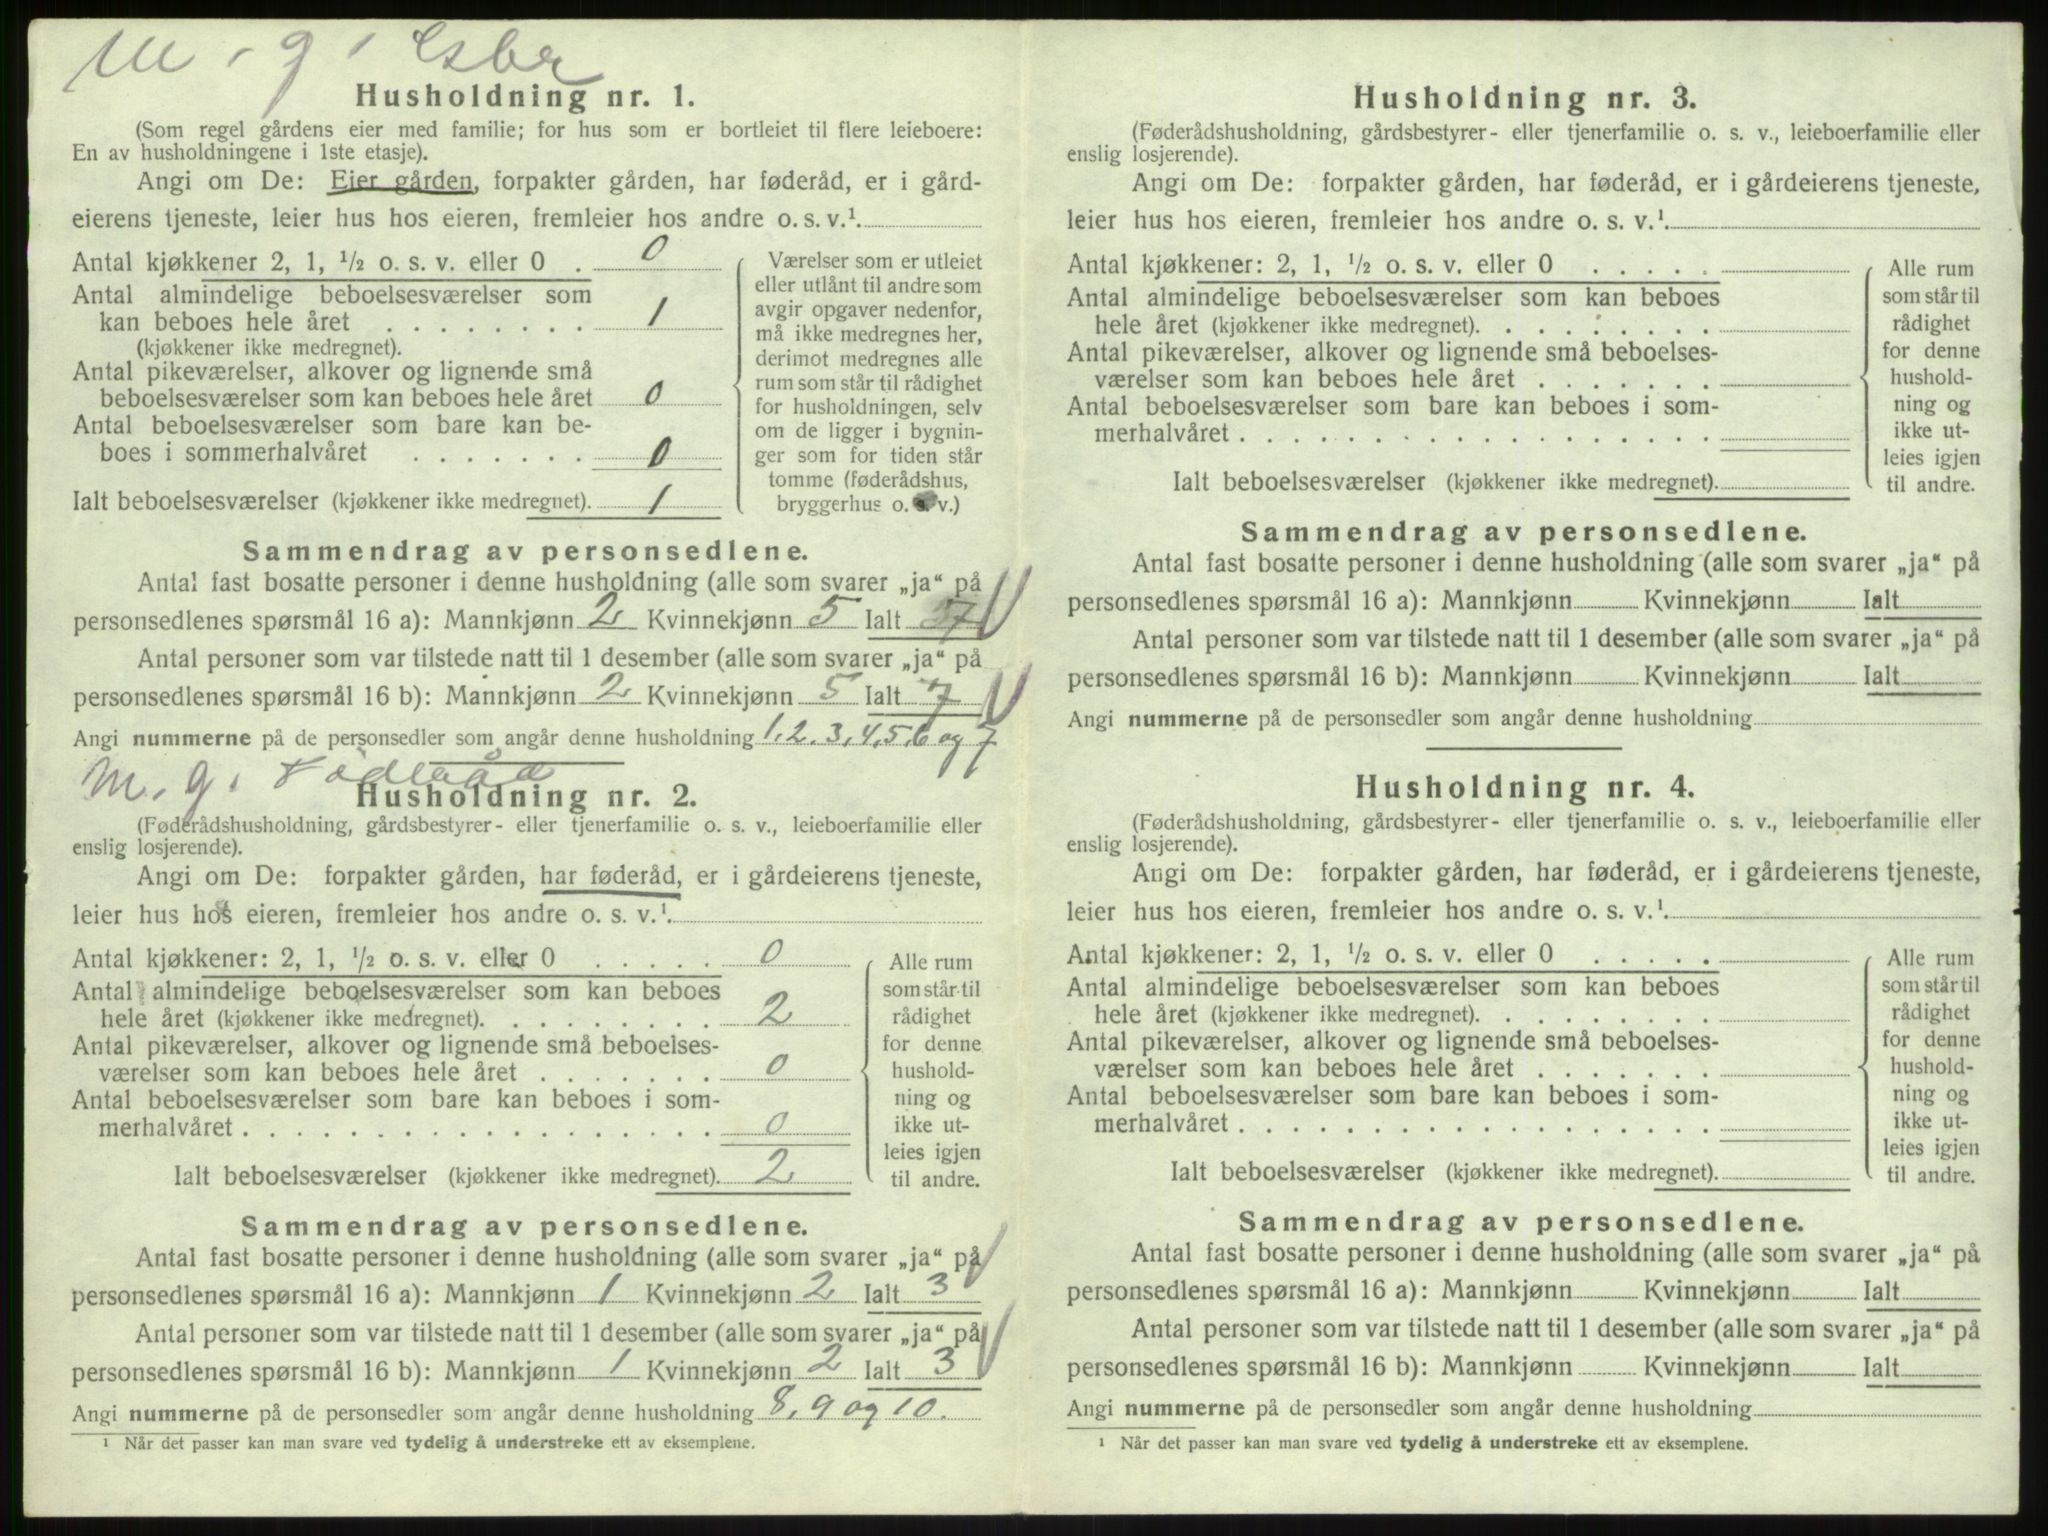 M. g. Gsbr
Husholdning nr. 1.
(Som regel gårdens eier med familie; for hus som er bortleiet til flere leieboere:
En av husholdningene i 1ste etasje).
Angi om De: Eier gården, forpakter gården, har føderåd, er i gård-
eierens tjeneste, leier hus hos eieren, fremleier hos andre o. s. v.¹
Antal kjøkkener 2, 1, ½ o. s. v. eller 0 . 0
Antal almindelige beboelsesværelser som
kan beboes hele året . . . . . . . . 1
(kjøkkener ikke medregnet).
Antal pikeværelser, alkover og lignende små
beboelsesværelser som kan beboes hele året 0
Antal beboelsesværelser som bare kan be-
boes i sommerhalvåret . . . . . . . 0
Ialt beboelsesværelser (kjøkkener ikke medregnet). 1
Værelser som er utleiet
eller utlånt til andre som
avgir opgaver nedenfor,
må ikke medregnes her,
derimot medregnes alle
rum som står til rådighet
for husholdningen, selv
om de ligger i bygnin-
ger som for tiden står
tomme (føderådshus,
bryggerhus o. s. v.)
Sammendrag av personsedlene.
Antal fast bosatte personer i denne husholdning (alle som svarer „ja“ på
personsedlenes spørsmål 16 a): Mannkjønn 2 Kvinnekjønn 5 Ialt 7
Antal personer som var tilstede natt til 1 desember (alle som svarer „ja“ på
personsedlenes spørsmål 16 b): Mannkjønn 2 Kvinnekjønn 5 Ialt 7
Angi nummerne på de personsedler som angår denne husholdning 1, 2. 3, 4, 5, 6 og 7
M. g. Föderåd
Husholdning nr. 2.
(Føderådshusholdning, gårdsbestyrer- eller tjenerfamilie o. s. v., leieboerfamilie eller
enslig losjerende).
Angi om De: forpakter gården, har føderåd, er i gårdeierens tjeneste,
leier hus hos eieren, fremleier hos andre o. s. v.¹
Antal kjøkkener: 2, 1, ½ o. s. v. eller 0 . . . . . 0
Antal almindelige beboelsesværelser som kan beboes
hele året (kjøkkener ikke medregnet). . . . . . . . . 2
Antal pikeværelser, alkover og lignende små beboelses-
værelser som kan beboes hele året . . . . . . . 0
Antal beboelsesværelser som bare kan beboes i som-
merhalvåret . . . . . . . . . . . . . . . . . . 0
Ialt beboelsesværelser (kjøkkener ikke medregnet). 2
Alle rum
som står til
rådighet
for denne
hushold-
ning og
ikke ut-
leies igjen
til andre.
Sammendrag av personsedlene.
Antal fast bosatte personer i denne husholdning (alle som svarer „ja“ på
personsedlenes spørsmål 16 a): Mannkjønn 1 Kvinnekjønn 2 Ialt 3
Antal personer som var tilstede natt til 1 desember (alle som svarer „ja“ på
personsedlenes spørsmål 16 b): Mannkjønn 1 Kvinnekjønn 2 Ialt 3
Angi nummerne på de personsedler som angår denne husholdning 8, 9 og 10.
¹ Når det passer kan man svare ved tydelig å understreke ett av eksemplene.
Husholdning nr. 3.
(Føderådshusholdning, gårdsbestyrer- eller tjenerfamilie o. s. v., leieboerfamilie eller
enslig losjerende).
Angi om De: forpakter gården, har føderåd, er i gårdeierens tjeneste,
leier hus hos eieren, fremleier hos andre o. s. v.¹
Antal kjøkkener: 2, 1, ½ o. s. v. eller 0 . . . . .
Antal almindelige beboelsesværelser som kan beboes
hele året (kjøkkener ikke medregnet). . . . . . . . .
Antal pikeværelser, alkover og lignende små beboelses-
værelser som kan beboes hele året . . . . . . .
Antal beboelsesværelser som bare kan beboes i som-
merhalvåret . . . . . . . . . . . . . . . . . .
Ialt beboelsesværelser (kjøkkener ikke medregnet).
Alle rum
som står til
rådighet
for denne
hushold-
ning og
ikke ut-
leies igjen
til andre.
Sammendrag av personsedlene.
Antal fast bosatte personer i denne husholdning (alle som svarer „ja“ på
personsedlenes spørsmål 16 a): Mannkjønn Kvinnekjønn Ialt
Antal personer som var tilstede natt til 1 desember (alle som svarer „ja“ på
personsedlenes spørsmål 16 b): Mannkjønn Kvinnekjønn Ialt
Angi nummerne på de personsedler som angår denne husholdning
Husholdning nr. 4.
(Føderådshusholdning, gårdsbestyrer- eller tjenerfamilie o. s. v., leieboerfamilie eller
enslig losjerende).
Angi om De: forpakter gården, har føderåd, er i gårdeierens tjeneste,
leier hus hos eieren, fremleier hos andre o. s. v.¹
Antal kjøkkener: 2, 1, ½ o. s. v. eller 0 . . . . .
Antal almindelige beboelsesværelser som kan beboes
hele året (kjøkkener ikke medregnet). . . . . . . . .
Antal pikeværelser, alkover og lignende små beboelses-
værelser som kan beboes hele året . . . . . . .
Antal beboelsesværelser som bare kan beboes i som-
merhalvåret . . . . . . . . . . . . . . . . . .
Ialt beboelsesværelser (kjøkkener ikke medregnet).
Alle rum
som står til
rådighet
for denne
hushold-
ning og
ikke ut-
leies igjen
til andre.
Sammendrag av personsedlene.
Antal fast bosatte personer i denne husholdning (alle som svarer „ja“ på
personsedlenes spørsmål 16 a): Mannkjønn Kvinnekjønn Ialt
Antal personer som var tilstede natt til 1 desember (alle som svarer „ja“ på
personsedlenes spørsmål 16 b): Mannkjønn Kvinnekjønn Ialt
Angi nummerne på de personsedler som angår denne husholdning
¹ Når det passer kan man svare ved tydelig å understreke ett av eksemplene.